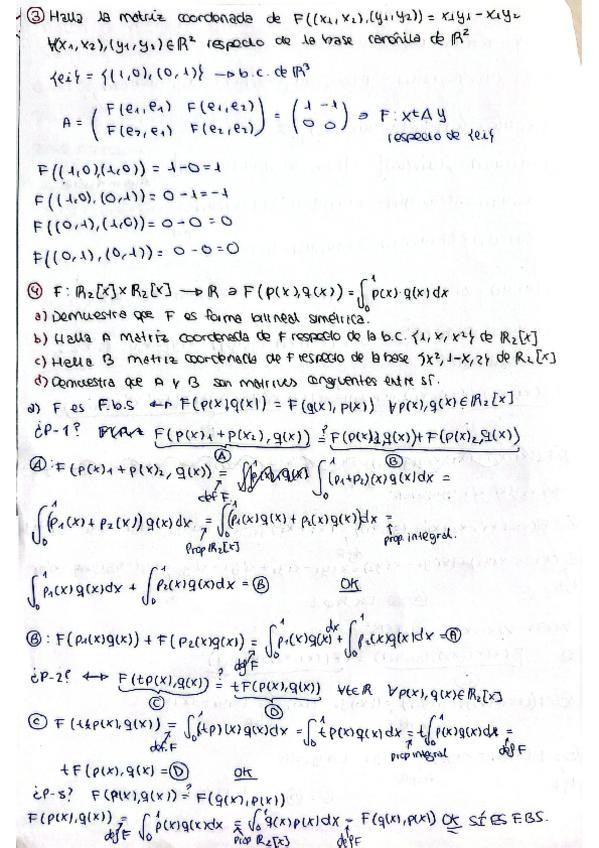 ③ Halla la matriz coordenada de F((x₁,x₂),(y₁,y₂)) = x₁y₁ - x₁y₂
∀(x₁,x₂),(y₁,y₂)∈ℝ² respecto de la base canónica de ℝ²
{ei} = {(1,0),(0,1)} → b.c. de ℝ³
A = ( F(e₁,e₁) F(e₁,e₂) ; F(e₂,e₁) F(e₂,e₂) ) = ( 1 -1 ; 0 0 ) ⇒ F: xᵗAY
respecto de {ei}
F((1,0),(1,0)) = 1-0=1
F((1,0),(0,1)) = 0-1=-1
F((0,1),(1,0)) = 0-0=0
F((0,1),(0,1)) = 0-0=0
④ F: ℝ₂[x]×ℝ₂[x] → ℝ ∋ F(p(x),q(x)) = ∫₀¹ p(x)·q(x)dx
a) Demuestra que F es forma bilineal simétrica.
b) Halla A matriz coordenada de F respecto de la b.c. {1,x,x²} de ℝ₂[x]
c) Halla B matriz coordenada de F respecto de la base {x²,1-x,2} de ℝ₂[x]
d) Demuestra que A y B son matrices congruentes entre sí.
a) F es F.b.s ↔ F(p(x)q(x)) = F(q(x),p(x)) ∀p(x),q(x)∈ℝ₂[x]
¿P-1? F(p(x)₁+p(x)₂),q(x)) ≟ F(p(x)₁q(x))+F(p(x)₂q(x))
Ⓐ Ⓑ
Ⓐ: F(p(x)₁+p(x)₂,q(x)) = ∫₀¹ (p₁+p₂)(x)q(x)dx =
def F
∫₀¹ (p₁(x)+p₂(x))q(x)dx = ∫₀¹ (p₁(x)q(x)+p₂(x)q(x))dx =
Prop ℝ₂[x] prop. integral.
∫₀¹ p₁(x)q(x)dx + ∫₀¹ p₂(x)q(x)dx = Ⓑ OK
Ⓑ: F(p₁(x)q(x))+F(p₂(x)q(x)) = ∫₀¹ p₁(x)q(x) dx + ∫₀¹ p₂(x)q(x)dx = Ⓐ
def F
¿P-2? ↔ F(tp(x),q(x)) ≟ tF(p(x),q(x)) ∀t∈ℝ ∀p(x),q(x)∈ℝ₂[x]
Ⓒ Ⓓ
Ⓒ F(tp(x),q(x)) = ∫₀¹ (tp)(x)q(x)dx = ∫₀¹ tp(x)q(x)dx = t∫₀¹ p(x)q(x)dx =
def. F prop integral def F
tF(p(x),q(x) = Ⓓ OK
¿P-s? F(p(x),q(x)) ≟ F(q(x),p(x))
F(p(x),q(x)) = ∫₀¹ p(x)q(x)dx = ∫₀¹ q(x)p(x)dx = F(q(x),p(x)) OK SÍ ES F.B.S.
def F prop ℝ₂[x] def F